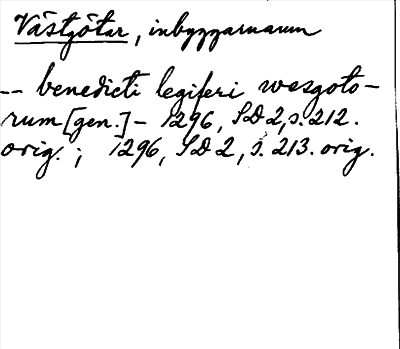 Västgötar, inbyggarnarum
-- benedicti legiferi wesgoto-
rum [gen.] - 1296, SD 2, s. 212.
orig. ; 1296, SD 2, s. 213. orig.